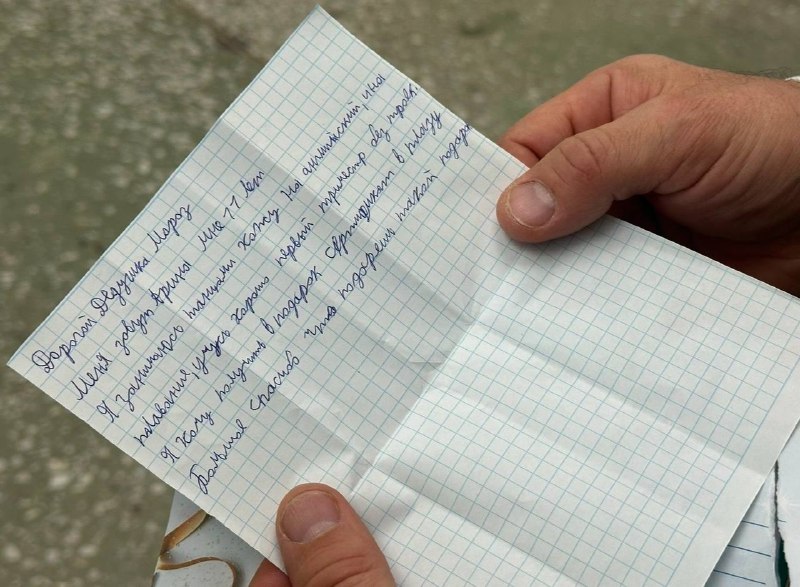 Дорогой Дедушка Мороз
Меня зовут Арина мне 11 лет
Я занимаюсь танцами хожу на английский, и на
плаванию, учусь хорошо первый триместр без троек.
Я хочу получить в подарок сертификат в плазу
Большое спасибо что подаришь такой подарок